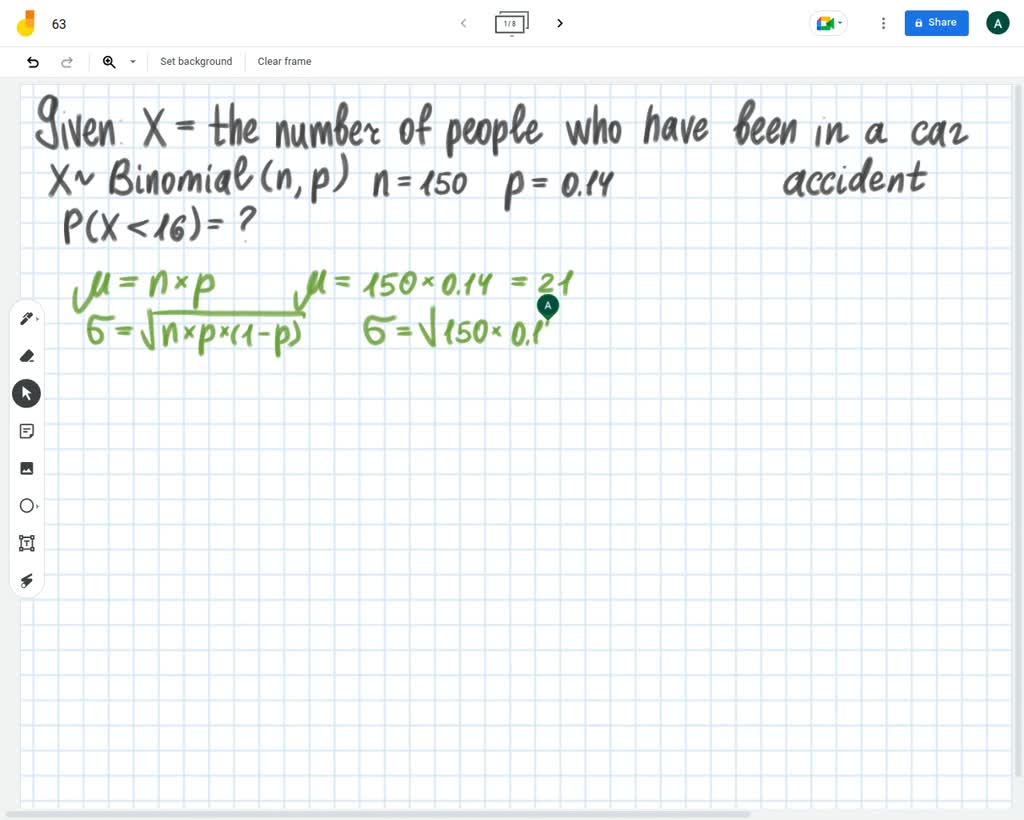 63
1/8
Share
A
Set background
Clear frame
Given: X = the number of people who have been in a car
accident
X ~ Binomial (n, p) n = 150 p = 0.14
P(X < 16) = ?
μ = n × p μ = 150 × 0.14 = 21
A
σ = √n × p × (1 - p) σ = √150 × 0.1